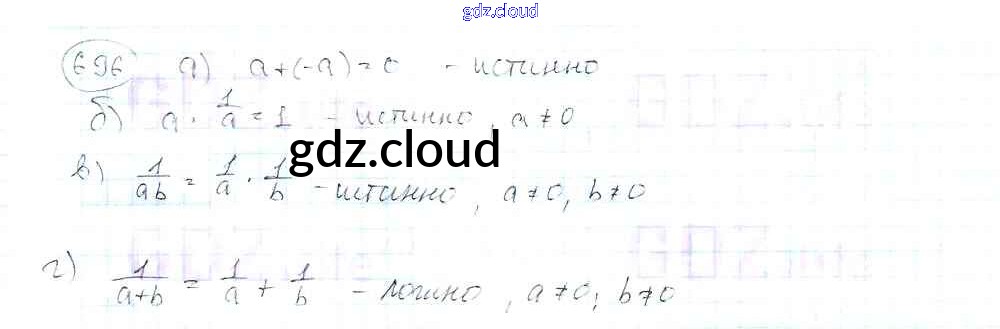 gdz.cloud
696 а) a+(-a)=0 - истинно
б) a · 1/a = 1 - истинно, a ≠ 0
gdz.cloud
в) 1/ab = 1/a · 1/b - истинно, a ≠ 0, b ≠ 0
г) 1/a+b = 1/a + 1/b - ложно, a ≠ 0; b ≠ 0